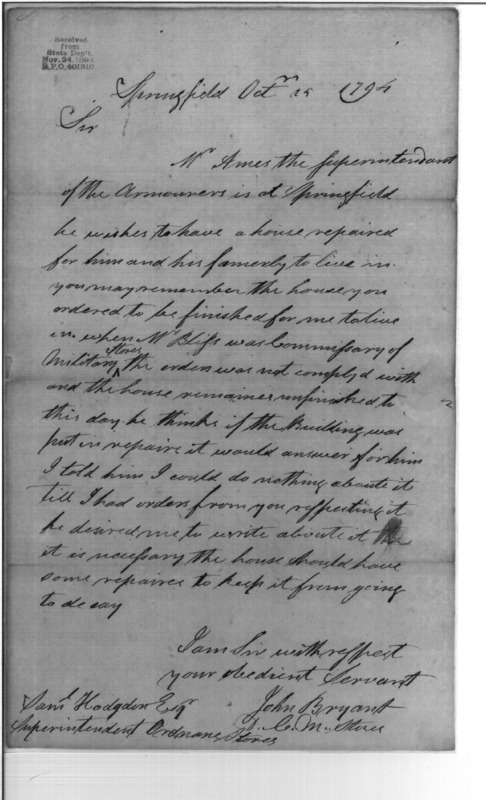 Received
from
State Dep't.
Nov. 24, 1894
Springfield Octr 25 1794
Sir
Mr Ames the Superintendant
of the Armourers is at Springfield
he wishes to have a house repaired
for him and his famerly to live in.
you may remember the house you
ordered to be finished for me to live
in when Mr Bliss was Commissary of
Military Stores the orders was not complyd with
and the house remaines unfinished to
this day. he thinks if the Building was
put in repaire it would answer for him
I told him I could do nothing aboute it
till I had orders from you respecting it
he desired me to write aboute it
it is necessary the house should have
some repaires to keep it from going
to decay
I am Sir with respect
your obedient Servant
John Bryant
D. C. M. Stores
Saml Hodgdon Esqr
Superintendent Ordnance Stores